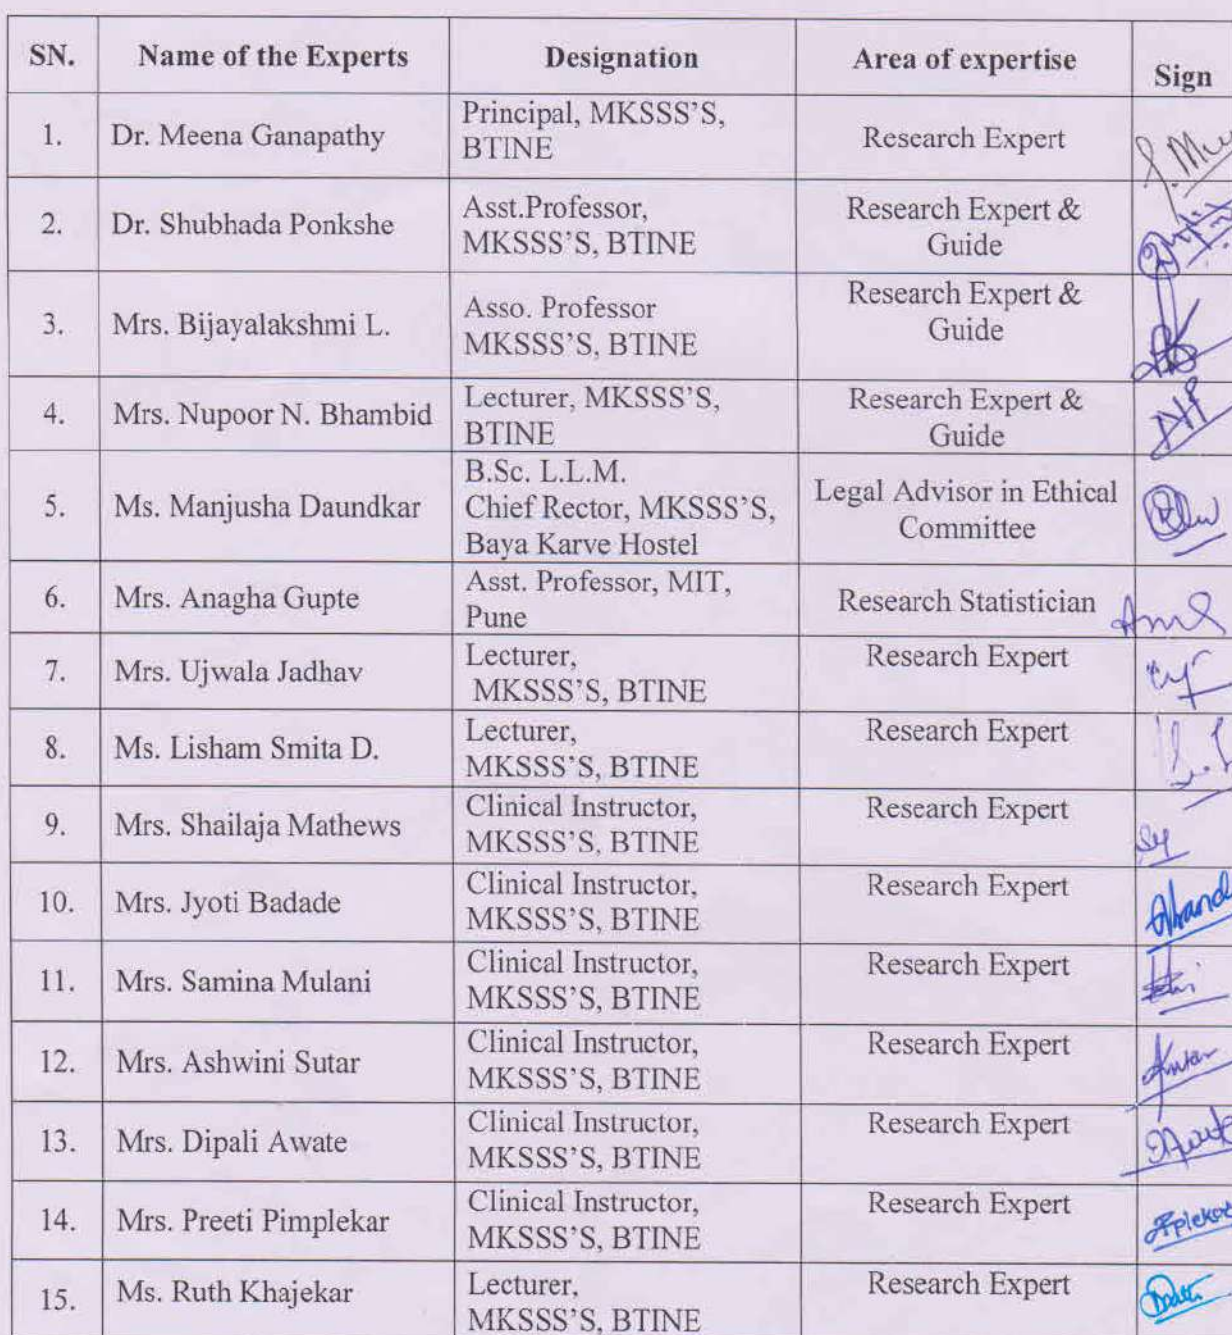 SN. Name of the Experts Designation Area of expertise Sign
1. Dr. Meena Ganapathy Principal, MKSSS'S, BTINE Research Expert
2. Dr. Shubhada Ponkshe Asst.Professor, MKSSS'S, BTINE Research Expert & Guide
3. Mrs. Bijayalakshmi L. Asso. Professor MKSSS'S, BTINE Research Expert & Guide
4. Mrs. Nupoor N. Bhambid Lecturer, MKSSS'S, BTINE Research Expert & Guide
5. Ms. Manjusha Daundkar B.Sc. L.L.M. Chief Rector, MKSSS'S, Baya Karve Hostel Legal Advisor in Ethical Committee
6. Mrs. Anagha Gupte Asst. Professor, MIT, Pune Research Statistician
7. Mrs. Ujwala Jadhav Lecturer, MKSSS'S, BTINE Research Expert
8. Ms. Lisham Smita D. Lecturer, MKSSS'S, BTINE Research Expert
9. Mrs. Shailaja Mathews Clinical Instructor, MKSSS'S, BTINE Research Expert
10. Mrs. Jyoti Badade Clinical Instructor, MKSSS'S, BTINE Research Expert
11. Mrs. Samina Mulani Clinical Instructor, MKSSS'S, BTINE Research Expert
12. Mrs. Ashwini Sutar Clinical Instructor, MKSSS'S, BTINE Research Expert
13. Mrs. Dipali Awate Clinical Instructor, MKSSS'S, BTINE Research Expert
14. Mrs. Preeti Pimplekar Clinical Instructor, MKSSS'S, BTINE Research Expert
15. Ms. Ruth Khajekar Lecturer, MKSSS'S, BTINE Research Expert